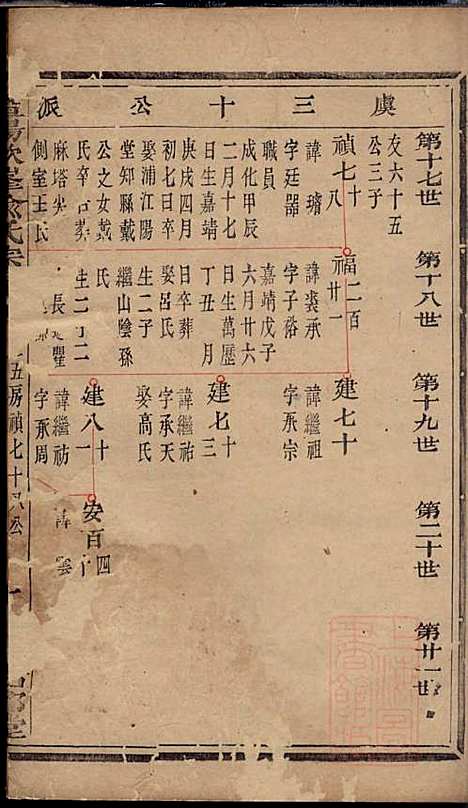 虞三十公派
第十七世
第十八世
第十九世
第二十世
第廿一世
友六十五
公三子
禎七十
八
諱璿
字廷器
職員
成化甲辰
二月十七
日生嘉靖
庚戌四月
初七日卒
娶浦江陽
堂知縣戴
公之女戴
氏卒
麻塔
側室王氏
生二子二
長
福二百
廿一
諱裘承
字子裕
嘉靖戊子
六月廿六
日生萬歷
丁丑 月
日卒葬
娶呂氏
生二子
繼山陰孫
氏
建七十
諱繼祖
字承宗
建七十
三
諱繼祐
字承天
娶高氏
建八十
一
諱繼祊
字承周
安百四
諱
五房禎七十八公
一